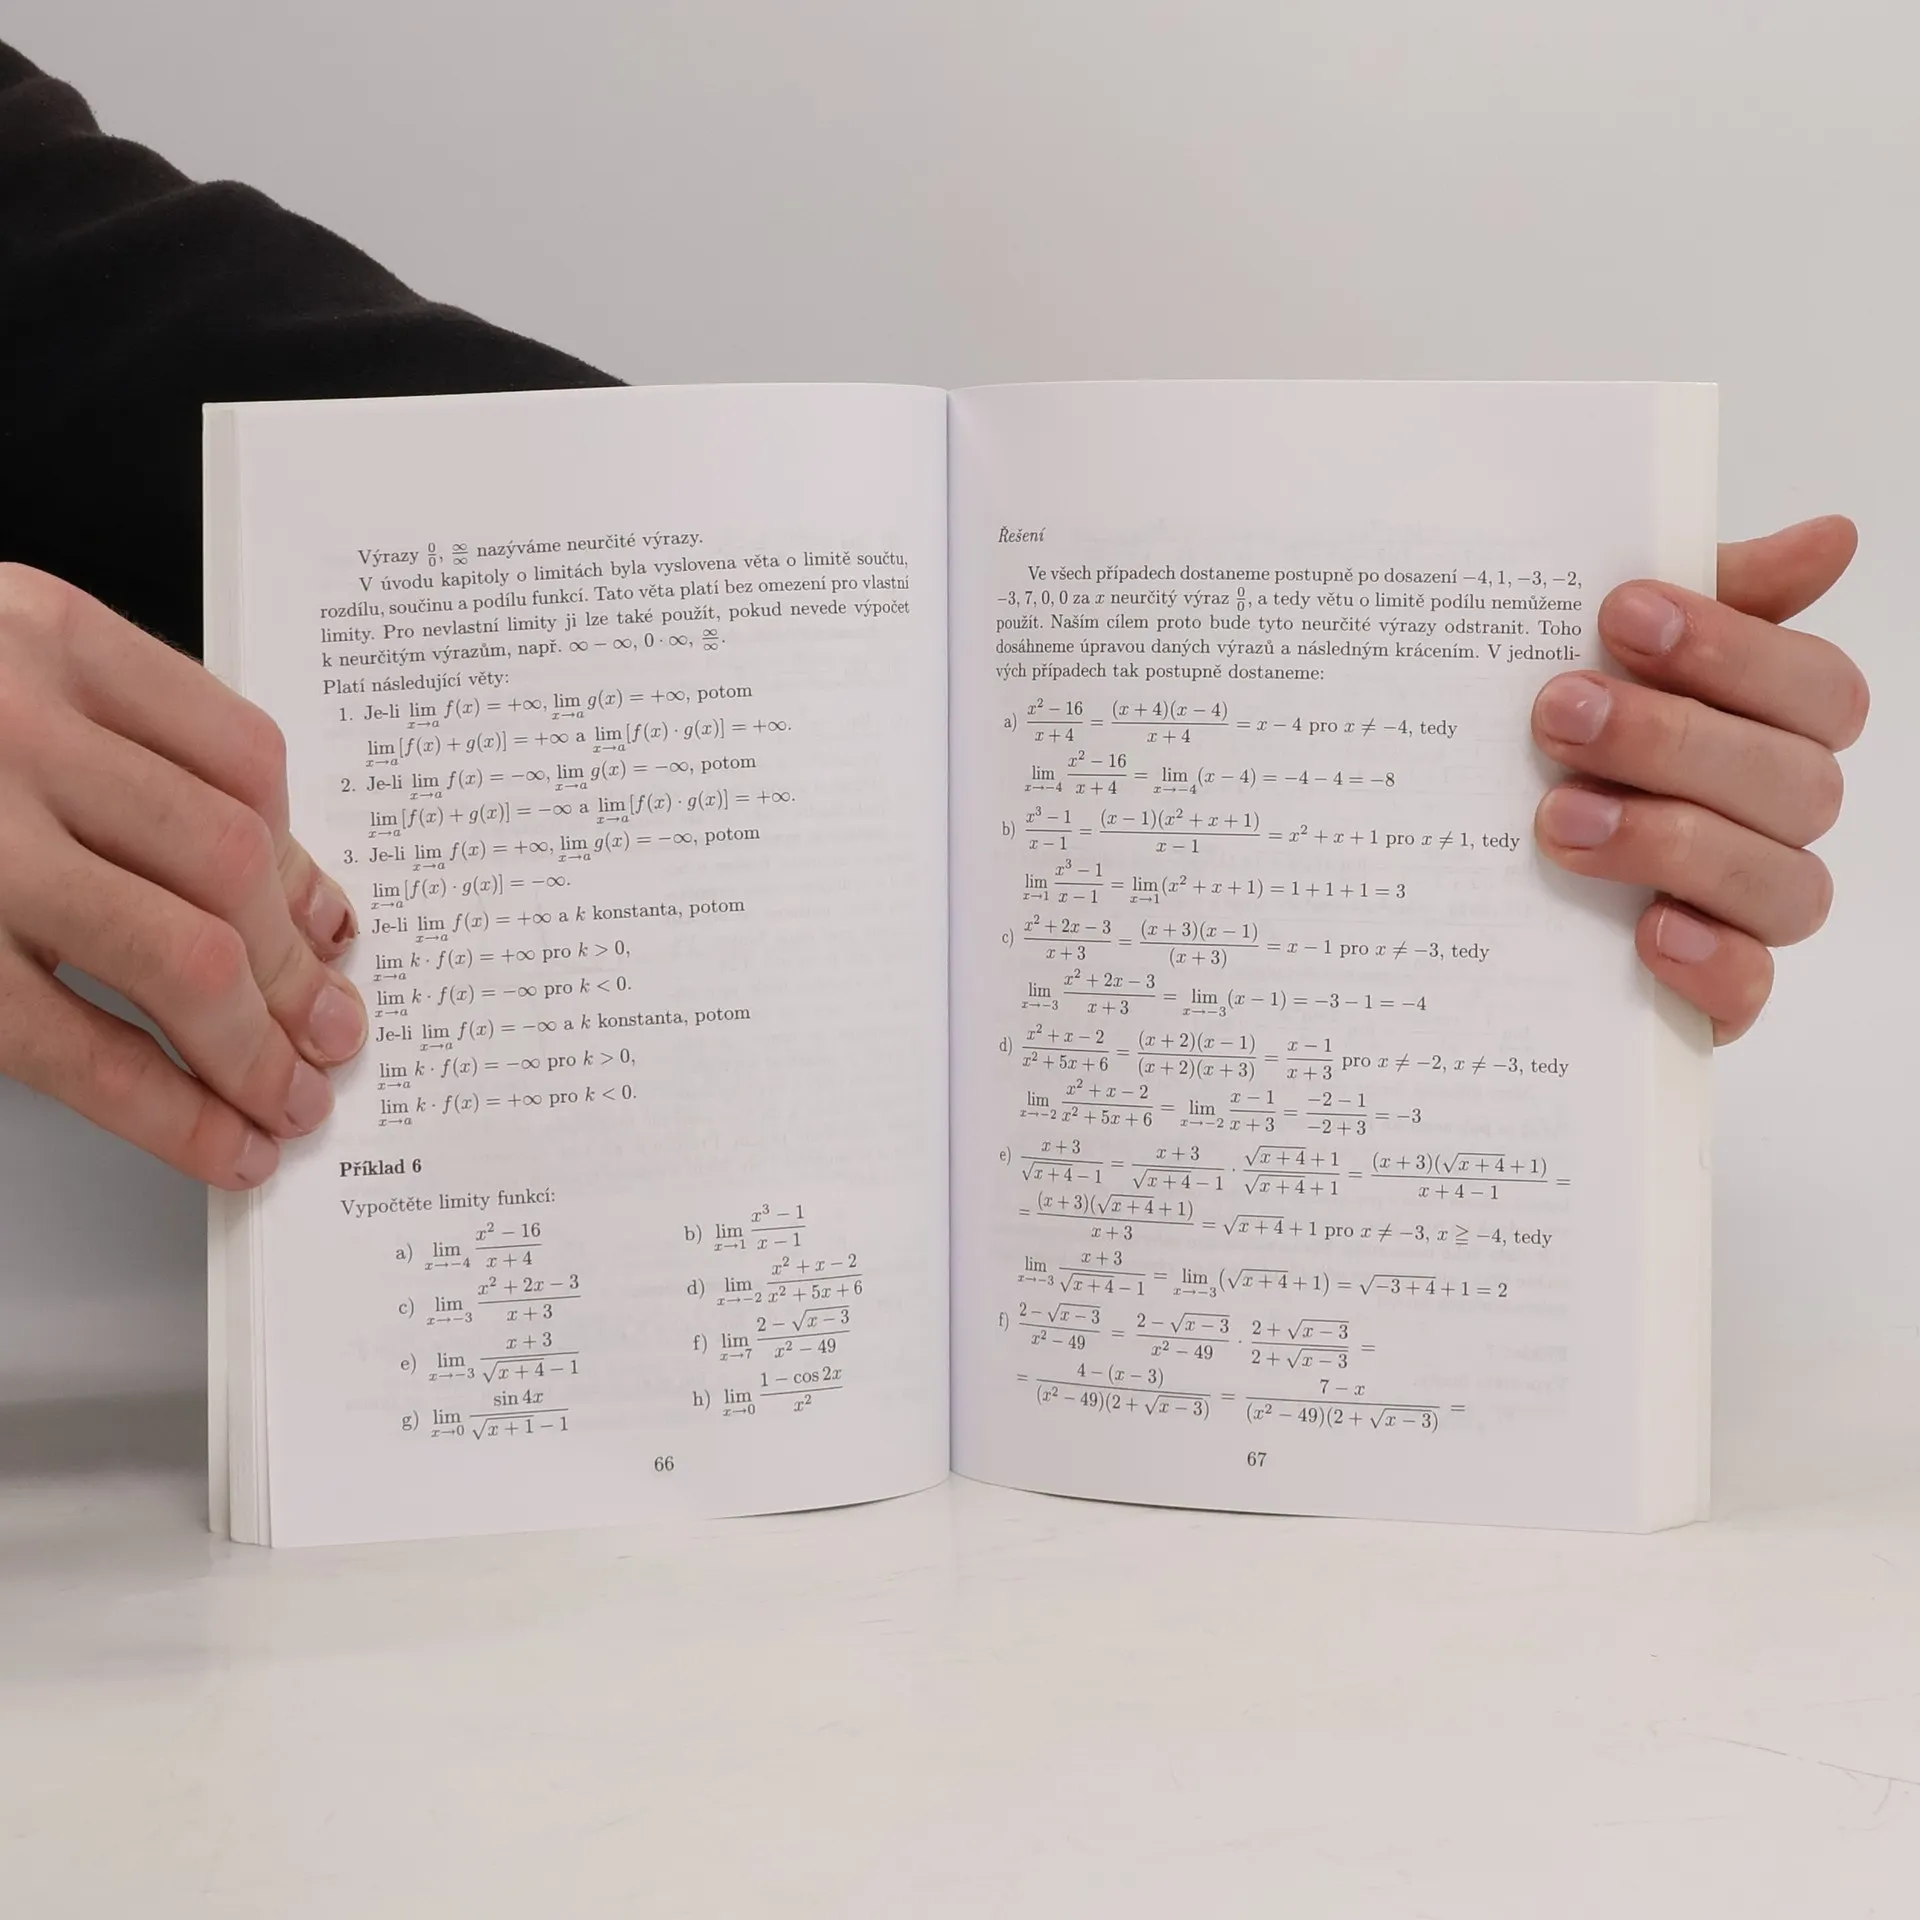 Výrazy 0/0, ∞/∞ nazýváme neurčité výrazy.
V úvodu kapitoly o limitách byla vyslovena věta o limitě součtu,
rozdílu, součinu a podílu funkcí. Tato věta platí bez omezení pro vlastní
limity. Pro nevlastní limity ji lze také použít, pokud nevede výpočet
k neurčitým výrazům, např. ∞ − ∞, 0 · ∞, ∞/∞.
Platí následující věty:
1. Je-li lim_{x→a} f(x) = +∞, lim_{x→a} g(x) = +∞, potom
lim_{x→a} [f(x) + g(x)] = +∞ a lim_{x→a} [f(x) · g(x)] = +∞.
2. Je-li lim_{x→a} f(x) = −∞, lim_{x→a} g(x) = −∞, potom
lim_{x→a} [f(x) + g(x)] = −∞ a lim_{x→a} [f(x) · g(x)] = +∞.
3. Je-li lim_{x→a} f(x) = +∞, lim_{x→a} g(x) = −∞, potom
lim_{x→a} [f(x) · g(x)] = −∞.
Je-li lim_{x→a} f(x) = +∞ a k konstanta, potom
lim_{x→a} k · f(x) = +∞ pro k > 0,
lim_{x→a} k · f(x) = −∞ pro k < 0.
Je-li lim_{x→a} f(x) = −∞ a k konstanta, potom
lim_{x→a} k · f(x) = −∞ pro k > 0,
lim_{x→a} k · f(x) = +∞ pro k < 0.
Příklad 6
Vypočtěte limity funkcí:
a) lim_{x→−4} (x² − 16)/(x + 4) b) lim_{x→1} (x³ − 1)/(x − 1)
c) lim_{x→−3} (x² + 2x − 3)/(x + 3) d) lim_{x→−2} (x² + x − 2)/(x² + 5x + 6)
e) lim_{x→−3} (x + 3)/(√(x + 4) − 1) f) lim_{x→7} (2 − √(x − 3))/(x² − 49)
g) lim_{x→0} (sin 4x)/(√(x + 1) − 1) h) lim_{x→0} (1 − cos 2x)/x²
66
Řešení
Ve všech případech dostaneme postupně po dosazení −4, 1, −3, −2,
−3, 7, 0, 0 za x neurčitý výraz 0/0, a tedy větu o limitě podílu nemůžeme
použít. Naším cílem proto bude tyto neurčité výrazy odstranit. Toho
dosáhneme úpravou daných výrazů a následným krácením. V jednotli-
vých případech tak postupně dostaneme:
a) (x² − 16)/(x + 4) = ((x + 4)(x − 4))/(x + 4) = x − 4 pro x ≠ −4, tedy
lim_{x→−4} (x² − 16)/(x + 4) = lim_{x→−4} (x − 4) = −4 − 4 = −8
b) (x³ − 1)/(x − 1) = ((x − 1)(x² + x + 1))/(x − 1) = x² + x + 1 pro x ≠ 1, tedy
lim_{x→1} (x³ − 1)/(x − 1) = lim_{x→1} (x² + x + 1) = 1 + 1 + 1 = 3
c) (x² + 2x − 3)/(x + 3) = ((x + 3)(x − 1))/((x + 3)) = x − 1 pro x ≠ −3, tedy
lim_{x→−3} (x² + 2x − 3)/(x + 3) = lim_{x→−3} (x − 1) = −3 − 1 = −4
d) (x² + x − 2)/(x² + 5x + 6) = ((x + 2)(x − 1))/((x + 2)(x + 3)) = (x − 1)/(x + 3) pro x ≠ −2, x ≠ −3, tedy
lim_{x→−2} (x² + x − 2)/(x² + 5x + 6) = lim_{x→−2} (x − 1)/(x + 3) = (−2 − 1)/(−2 + 3) = −3
e) (x + 3)/(√(x + 4) − 1) = (x + 3)/(√(x + 4) − 1) · (√(x + 4) + 1)/(√(x + 4) + 1) = ((x + 3)(√(x + 4) + 1))/(x + 4 − 1) =
= ((x + 3)(√(x + 4) + 1))/(x + 3) = √(x + 4) + 1 pro x ≠ −3, x ≧ −4, tedy
lim_{x→−3} (x + 3)/(√(x + 4) − 1) = lim_{x→−3} (√(x + 4) + 1) = √(−3 + 4) + 1 = 2
f) (2 − √(x − 3))/(x² − 49) = (2 − √(x − 3))/(x² − 49) · (2 + √(x − 3))/(2 + √(x − 3)) =
= (4 − (x − 3))/((x² − 49)(2 + √(x − 3))) = (7 − x)/((x² − 49)(2 + √(x − 3))) =
67